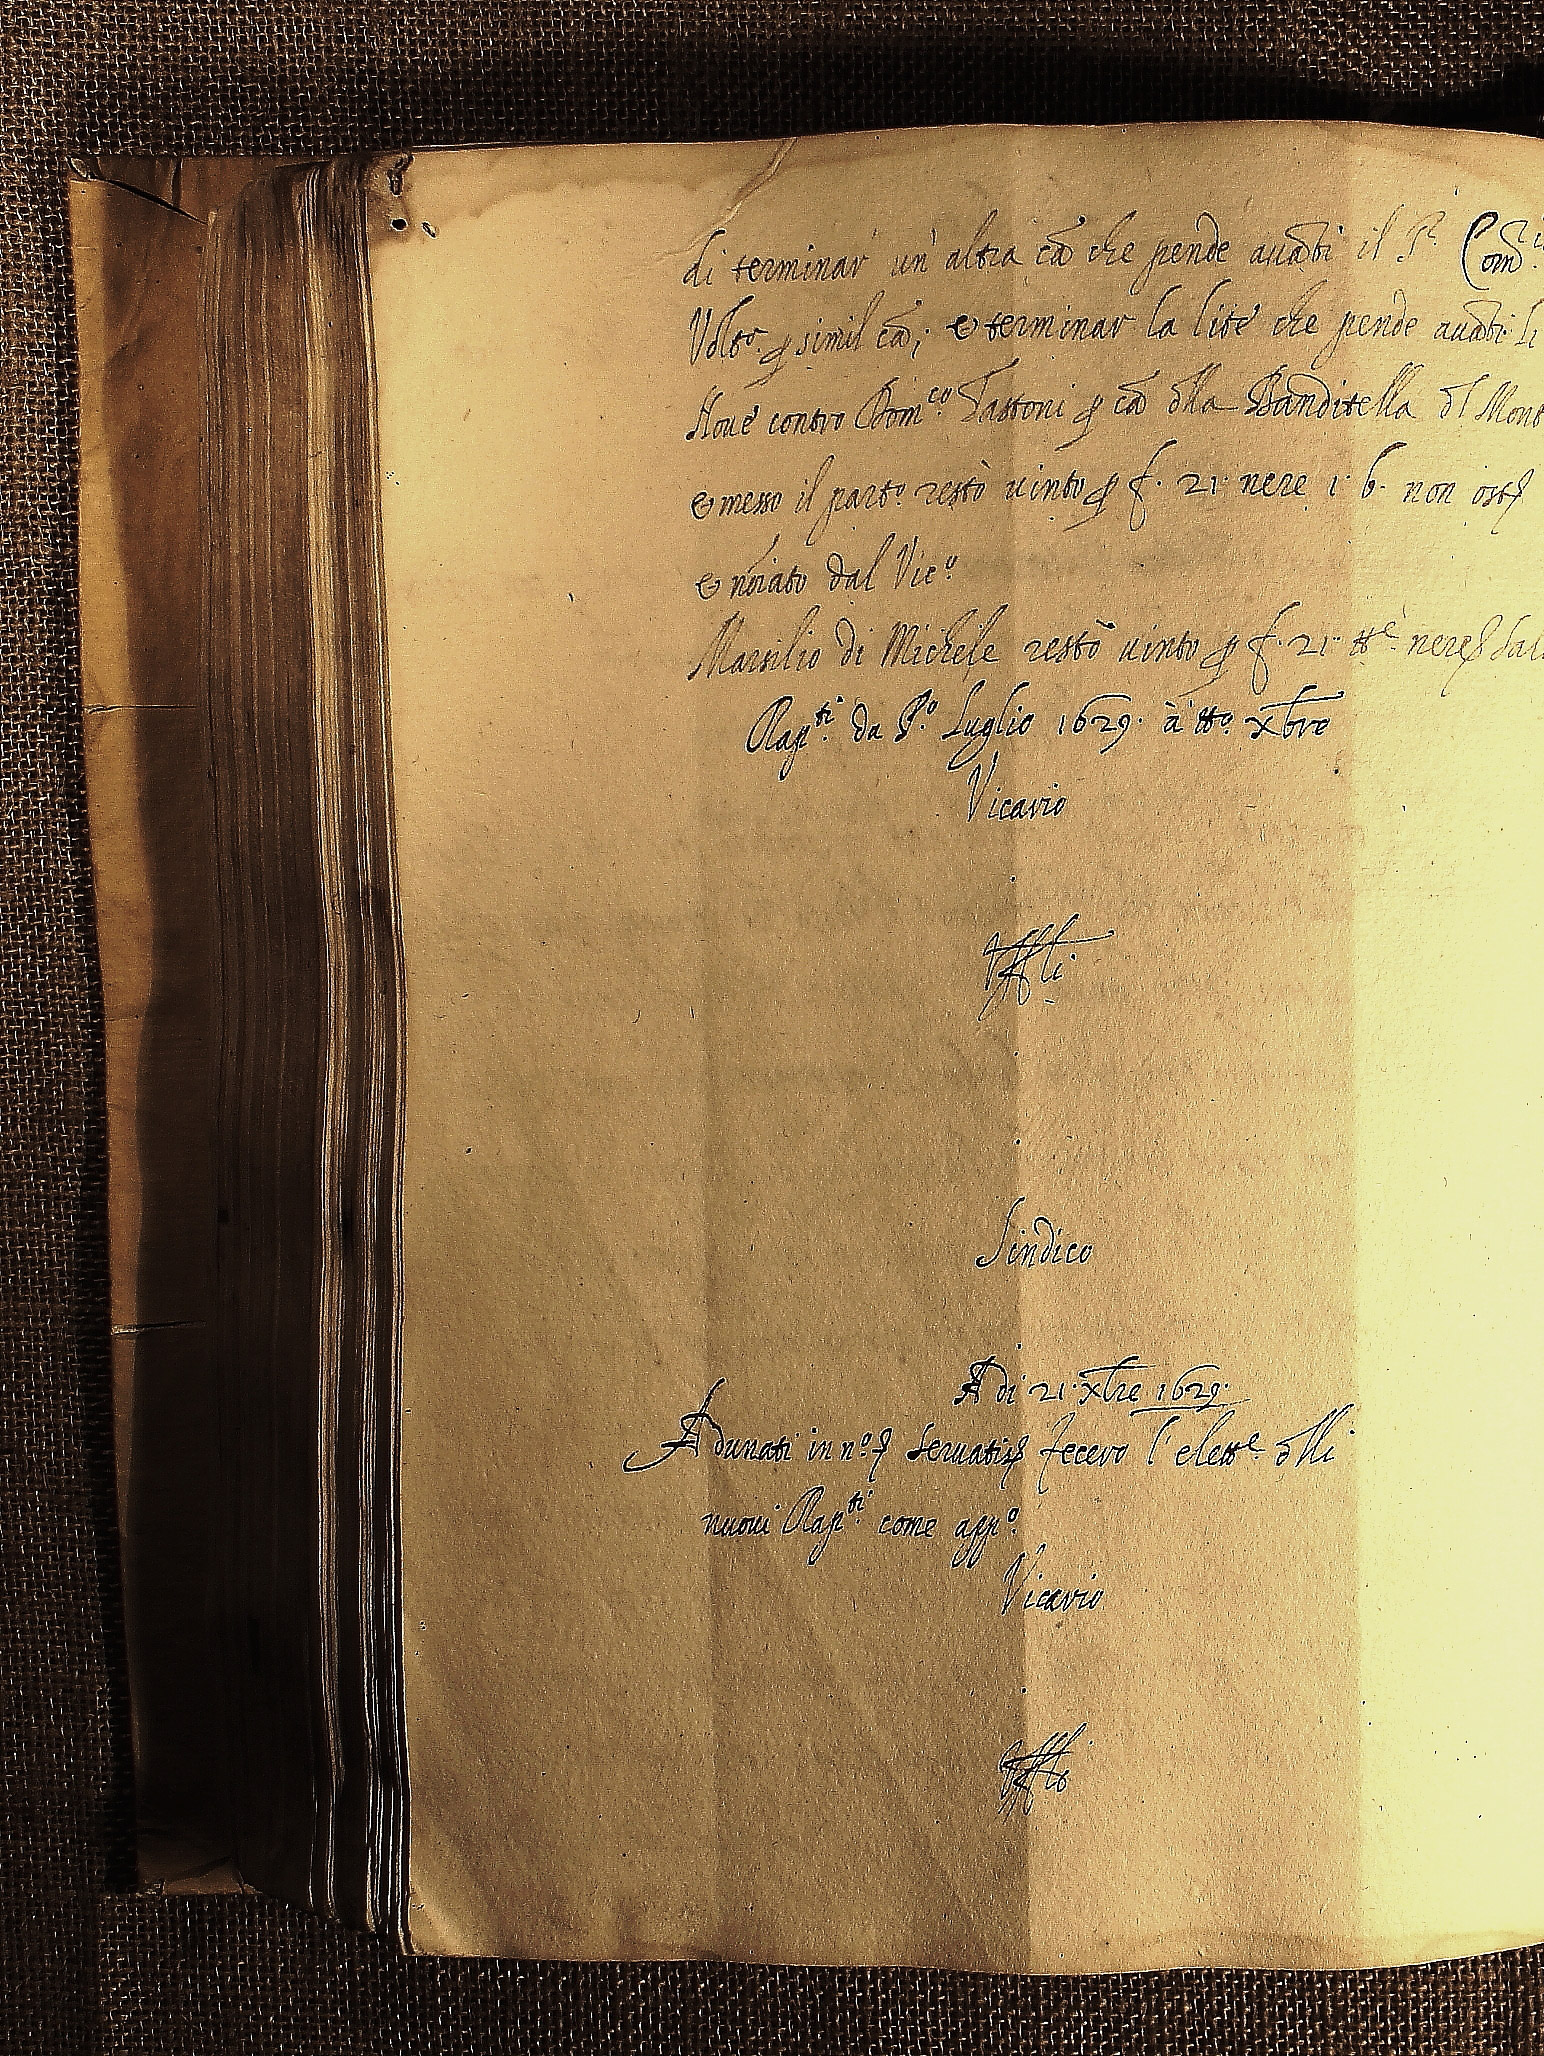 di terminar un altra cā che pende auāti il S.r Com
Volto. ꝑ simil cā; et terminar la lite che pende auāti li
Noue contro Dom.co Tastoni ꝑ cā dlla Banditella dl Mont
et messo il parto. restò uinto ꝑ f. 21 nere 1. b. non ost
et nōiato dal Vic.o
Marsilio di Michele restò uinto ꝑ f. 21. tt.e nere
Rap.ti da P.o Luglio 1629. à tto. xbre
Vicario
Sindico
A di 21. xbre 1629.
Adunati in n.o seruatis fecero l'elett.e dlli
nuoui Rap.ti come app.o
Vicario